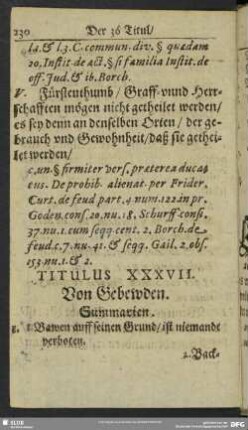 230 Der 36 Titul/
la. & l. 3. C. commun. div. § quædam
20. Instit. de act. § si familia Instit. de
off. Jud. & ib. Borch.
V. Fürstenthumb / Graff- unnd Herr-
schafften mögen nicht getheilet werden/
es sey denn an denselben Orten / der ge-
brauch vnd Gewohnheit/ daß sie gethei-
let werden/
c. un. § firmiter vers. præterea duca-
tus. De prohib. alienat. per Frider.
Curt. de feud part. 4 num. 122. in pr.
Goden. cons. 20. nu. 18. Schurff consi.
37. nu. 1. cum seqq. cent. 2. Borch. de
feud. c. 7. nu. 41. & seqq. Gail. 2. obs.
153. nu. 1. & 2.
TITULUS XXXVII.
Von Gebewden.
Summarien.
1. Bawen auff seinen Grund/ ist niemande
verboten.
2. Back-